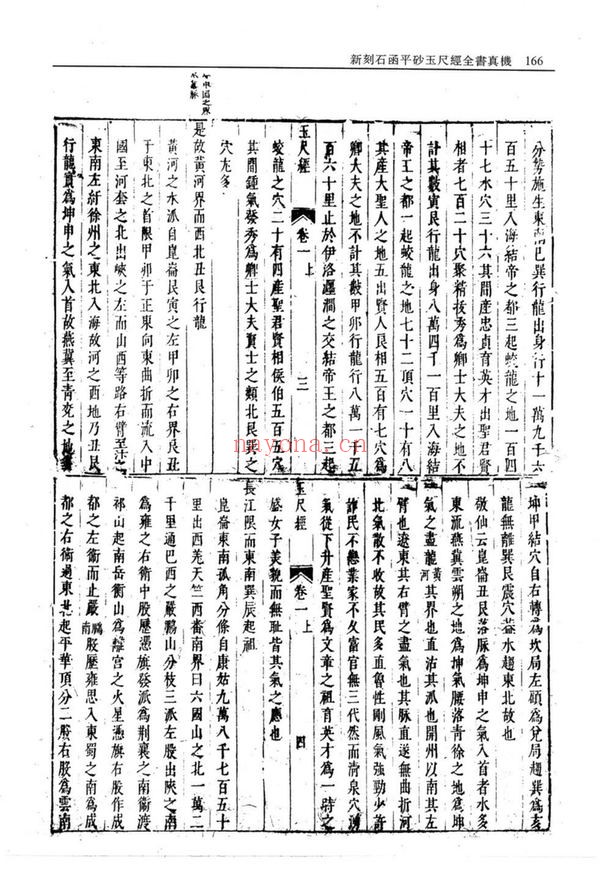 新刻石函平砂玉尺經全書真機 166
分勢施生東南巳巽行龍出身行十一萬九千六
百五十里入海結帝之都三起蛟龍之地一百四
十七水穴三十六其間產忠貞育英才出聖君賢
相者七百二十穴聚精拔秀爲卿士大夫之地不
計其數寅艮行龍出身八萬四千一百里入海結
帝王之都一起蛟龍之地七十二頂穴一十有八
其產大聖人之地五出賢人艮相五百有七穴爲
卿大夫之地不計其數甲卯行龍行八萬一千五
百六十里止於伊洛瀍澗之交結帝王之都三起
玉尺經 卷一上 三
蛟龍之穴二十有四產聖君賢相侯伯五百五穴
其間鍾氣發秀爲卿士大夫賓士之類北艮巽之
穴尤多
是故黃河界而西北丑艮行龍
黃河之水派自崑崙艮寅之左甲卯之右界艮丑
于東北之首限甲卯于正東向東曲折而流入中
國至河套之北出峽之左而山西等路右臂至汴之
東南左紆徐州之東北入海故河之西地乃丑艮
行龍實爲坤申之氣入首故燕冀至青兗之地
坤甲結穴自右轉爲坎局左頋爲兌局趨巽爲
龍無離巽艮震穴益水趨東北故也
敬仙云崑崙丑艮落脉爲坤申之氣入首者水多
東流燕冀雲朔之地爲坤氣腰落青徐之地爲坤
氣之盡龍黃河其界也直沽其派也開州以南其左
臂也遼東其右臂之盡氣也其脉直遂無曲折河
北氣散不收故其民多直魯性剛風氣強勁少許
詐民不戀業家不久富官無三代然而清泉穴溥
氣從下升產聖賢爲文章之祖育英才爲一時之
玉尺經 卷一上 四
盛女子美貌而無耻皆其氣之應也
長江限而東南巽辰起祖
崑崙東南孤角分條自康姑九萬八千七百五十
里出西羌天竺西番南界曰六國山之北一萬二
千里通巴西之嚴鵰山分枝三派左股出陜之南
爲雍之右衛中股歷憑旗發派爲荆襄之南衛渡
祁山起南岳衡山爲離宮之火星憑旗右股作成
都之左衛而止嚴鵰南股歷雍思入東蜀之南爲成
都之右衛過東世起平華頂分二股右股爲雲南